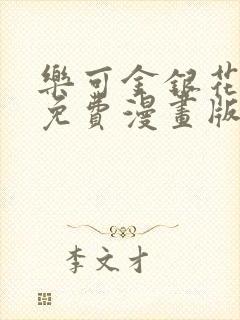 樂可金銀花
免費漫畫版
李文才